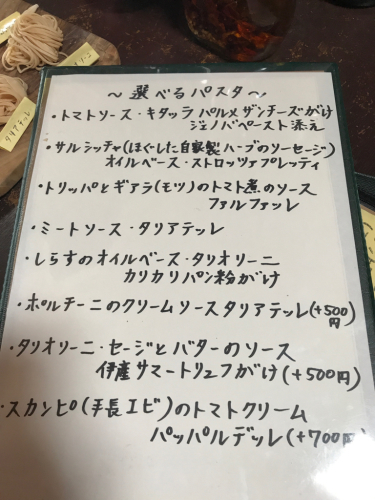 タリアテレ
～選べるパスタ～
・トマトソース・キタッラ パルメザンチーズがけ
ジェノバペースト添え
・サルシッチャ(ほぐした自家製ハーブのソーセージ)
オイルベース・ストロッツァプレッティ
・トリッパとギアラ(モツ)のトマト煮のソース
ファルファッレ
・ミートソース・タリアテッレ
・しらすのオイルベース・タリオリーニ
カリカリパン粉がけ
・ポルチーニのクリームソースタリアテッレ(+500円)
・タリオリーニ・セージとバターのソース
伊産サマートリュフがけ(+500円)
・スカンピ(手長エビ)のトマトクリーム
パッパルデッレ(+700円)